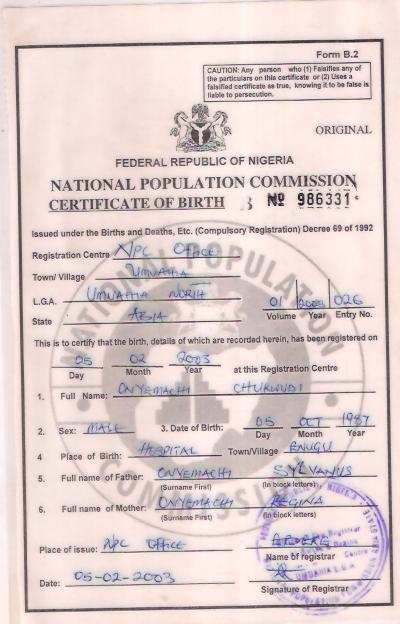 Form B.2
CAUTION: Any person who (1) Falsifies any of
the particulars on this certificate or (2) Uses a
falsified certificate as true, knowing it to be false is
liable to persecution.
ORIGINAL
FEDERAL REPUBLIC OF NIGERIA
NATIONAL POPULATION COMMISSION
CERTIFICATE OF BIRTH B Nº 986331
Issued under the Births and Deaths, Etc. (Compulsory Registration) Decree 69 of 1992
Registration Centre NPC OFFICE
Town/ Village UMUAHIA
L.G.A. UMUAHIA NORTH 01 026
State ABIA Volume Year Entry No.
This is to certify that the birth, details of which are recorded herein, has been registered on
05 02 2003 at this Registration Centre
Day Month Year
1. Full Name: ONYEMACHI CHUKWUDI
2. Sex: MALE 3. Date of Birth: 05 OCT 1987
Day Month Year
4 Place of Birth: HOSPITAL Town/Village ENUGU
5. Full name of Father: ONYEMACHI SYLVANUS
(Surname First) (In block letters)
6. Full name of Mother: ONYEMACHI REGINA
(Surname First) (In block letters)
Place of issue: NPC OFFICE
Name of registrar
Date: 05-02-2003
Signature of Registrar
NATIONAL POPULATION COMMISSION